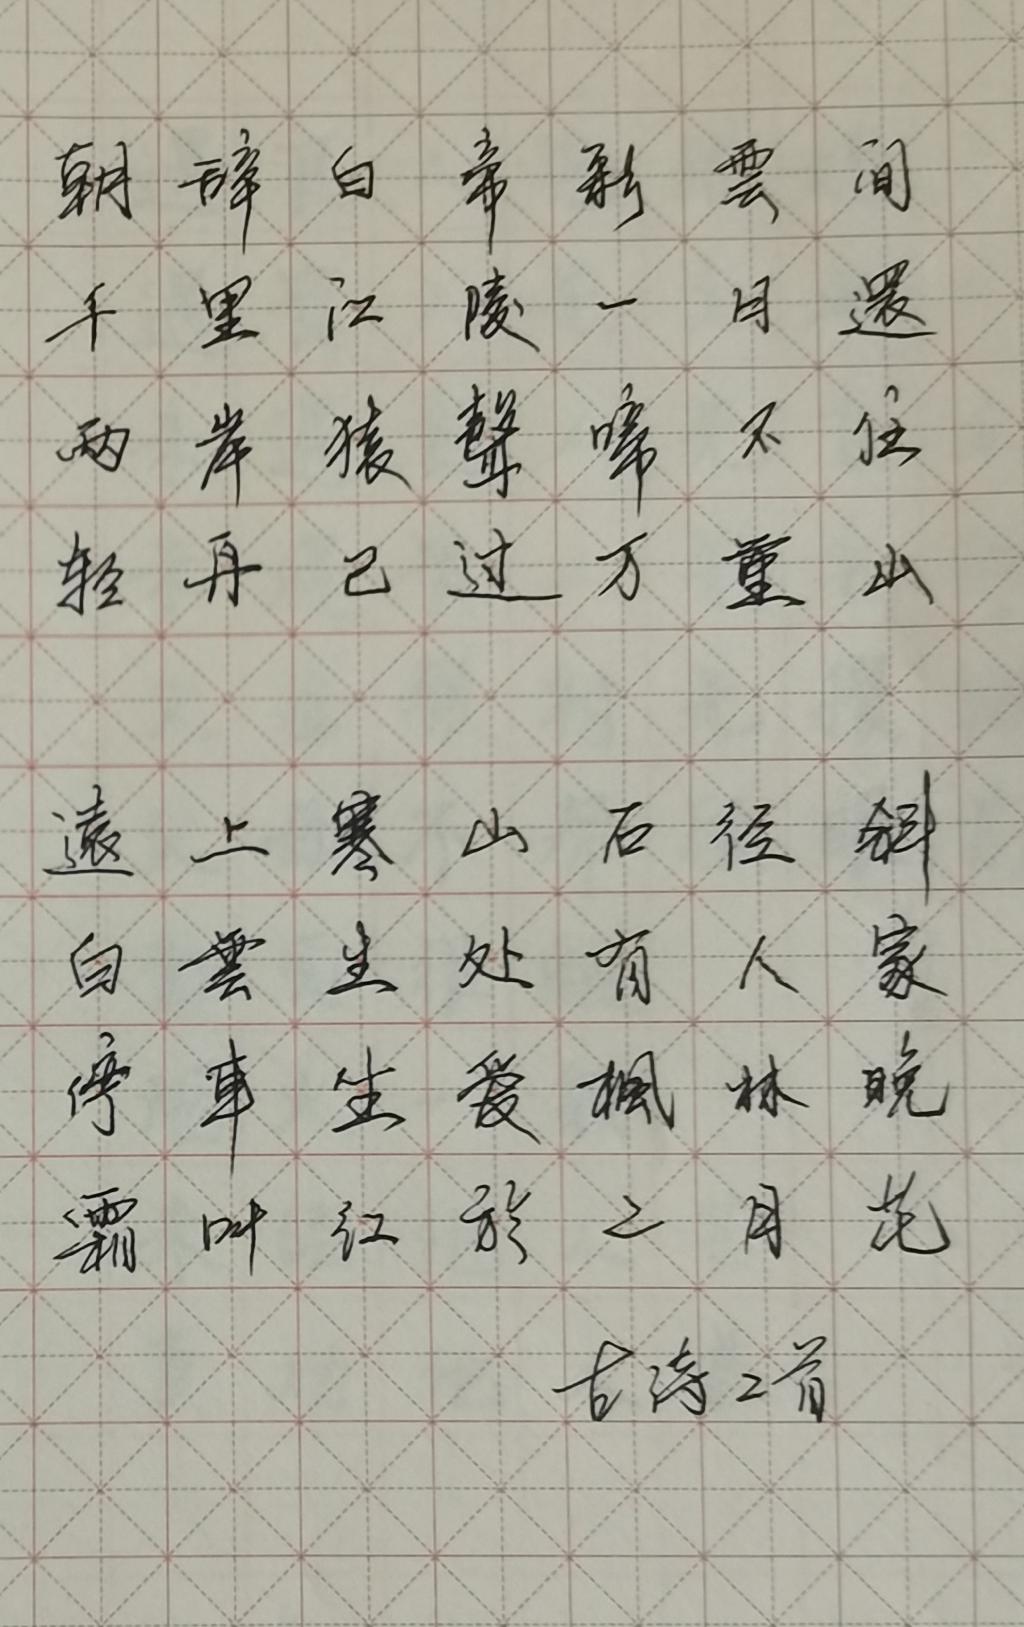 朝辞白帝彩雲间
千里江陵一日還
两岸猿聲啼不住
轻舟已过万重山
遠上寒山石径斜
白雲生处有人家
停車坐爱楓林晚
霜叶红於二月花
古诗二首